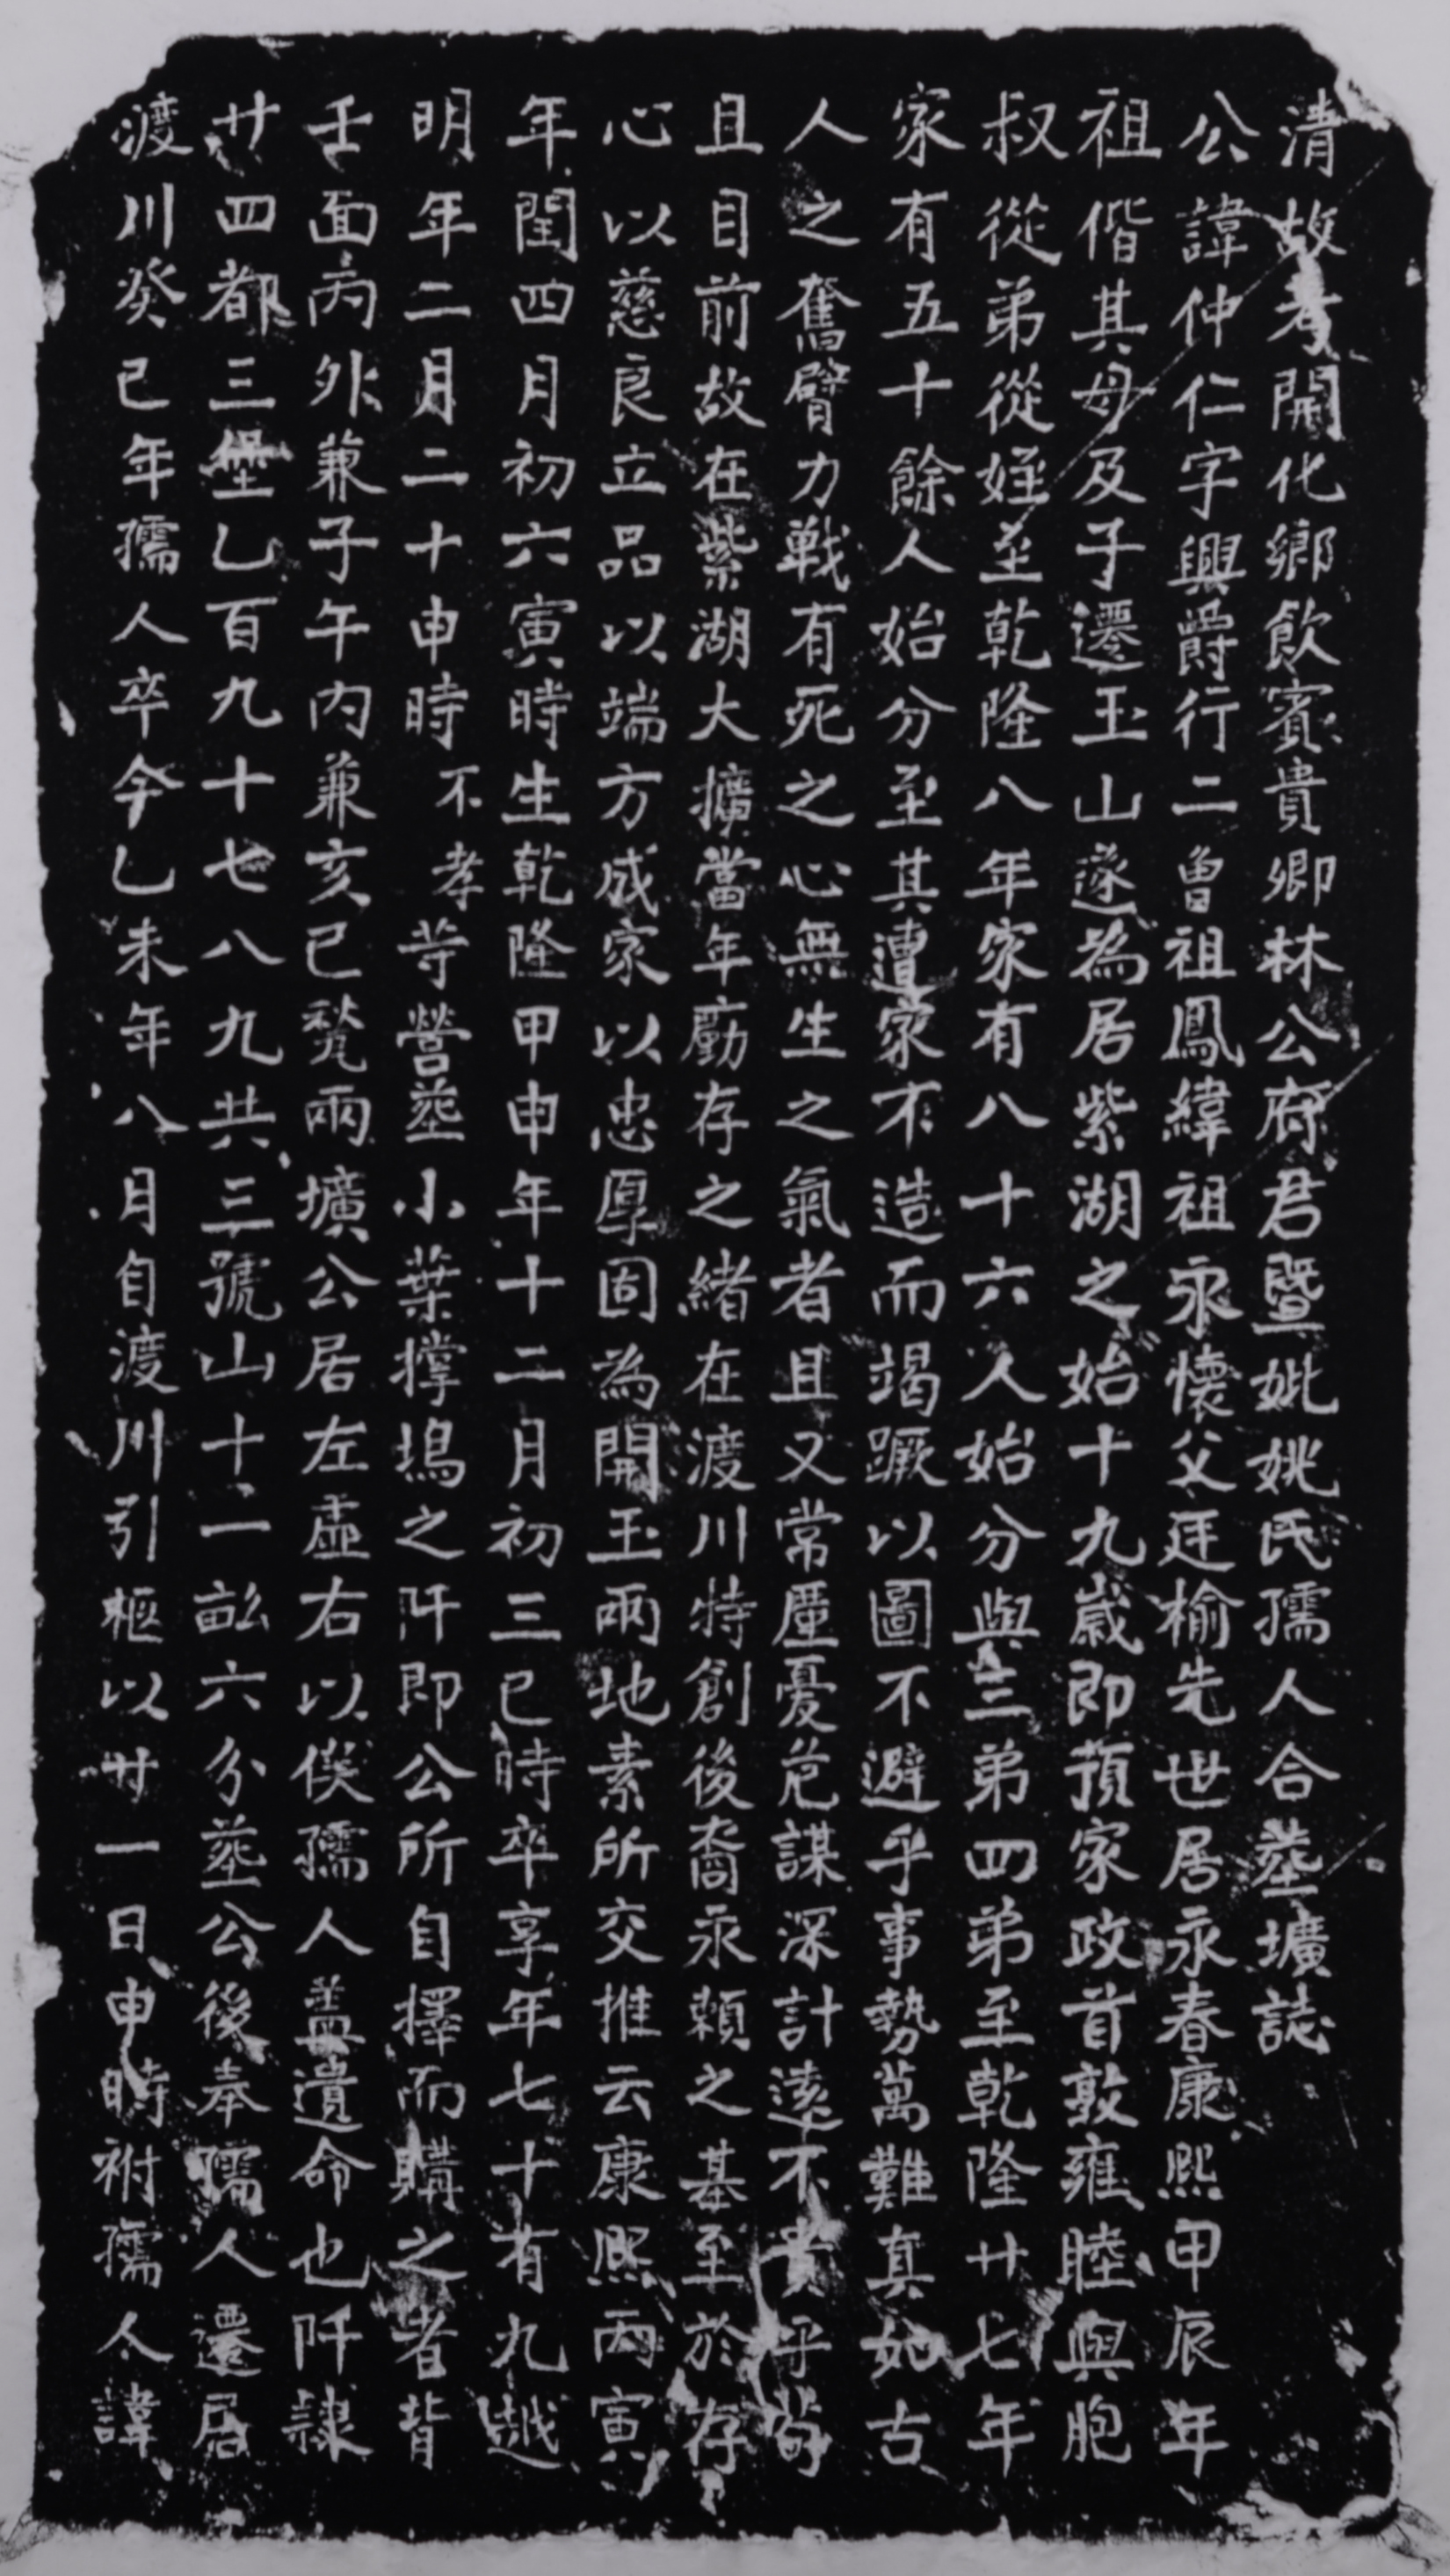 清故考開化鄉飲賓貴卿林公府君暨妣姚氏孺人合塟壙誌
公諱仲仁字興爵行二曾祖鳳緯祖永懷父廷榆先世居永春康熙甲辰年
祖偕其母及子遷玉山遂為居紫湖之始十九歲即預家政首敦雍睦與胞
叔從弟從姪至乾隆八年家有八十六人始分與三弟四弟至乾隆廿七年
家有五十餘人始分至其遭家不造而竭蹶以圖不避乎事勢萬難真如古
人之奮臂力戰有死之心無生之氣者且又常厪憂危謀深計遠不貴乎苟
且目前故在紫湖大擴當年勵存之緒在渡川特創後裔永賴之基至於存
心以慈良立品以端方成家以忠厚固為開玉兩地素所交推云康熙丙寅
年閏四月初六寅時生乾隆甲申年十二月初三巳時卒享年七十有九越
明年二月二十申時不孝䓁營塟小葉撑塢之阡即公所自擇而購之者背
壬面丙外兼子午內兼亥巳甃兩壙公居左虛右以俟孺人盖遺命也阡隷
廿四都三堡乙百九十七八九共三號山十二畆六分塟公後奉孺人遷居
渡川癸巳年孺人卒今乙未年八月自渡川引柩以廿一日申時祔孺人諱